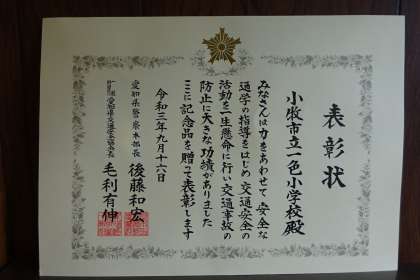 表彰状
小牧市立一色小学校殿
みなさんは力をあわせて安全な
通学の指導をはじめ交通安全の
活動を一生懸命に行い交通事故の
防止に大きな功績がありました
ここに記念品を贈って表彰します
令和三年九月十六日
愛知県警察本部長 後藤和宏
愛知県交通安全協会長 毛利有伸